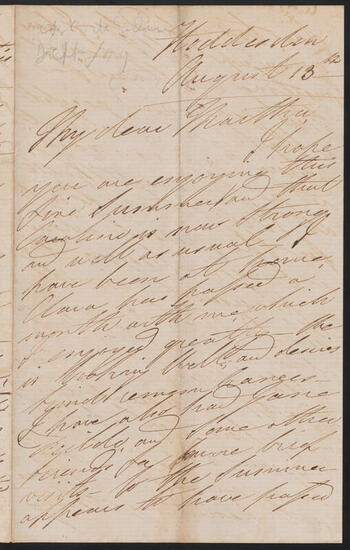 Hoddesdon
August 13th
My dear Martha
I hope
you are enjoying this
fine Summer and that
Caroline is now strong
and well as usual. I
have been at home,
Clara has passed a
month with me, which
I enjoyed greatly - She
is looking well and desires
kindest remembrances -
I have also had Jane
and some other
friends for more brief
visits - so the Summer
appears to have passed